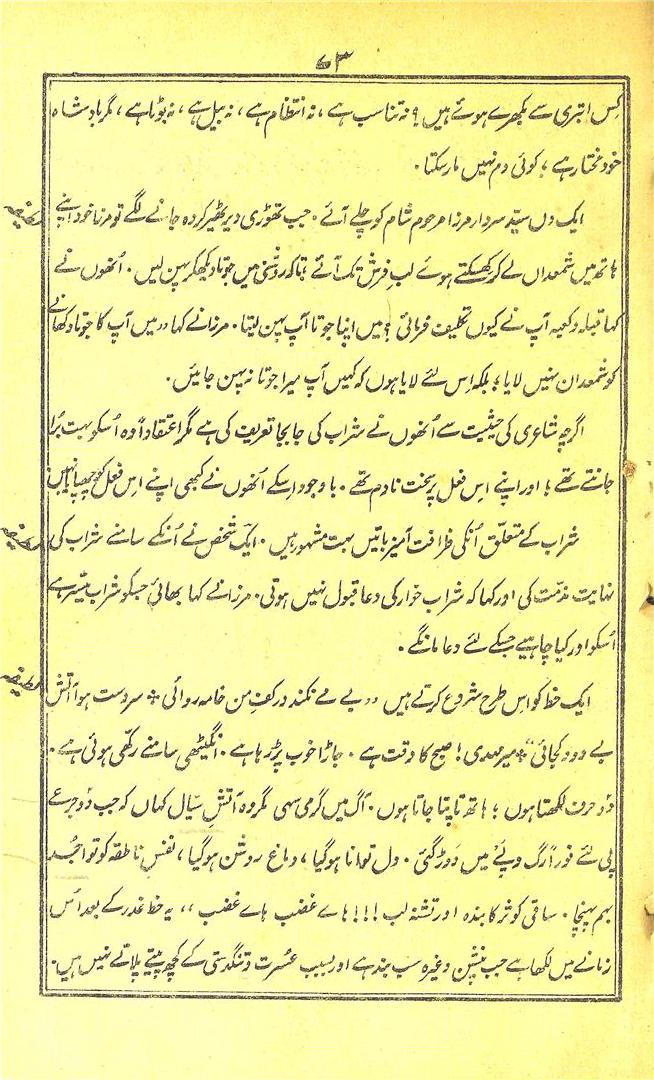 ۷۳
کس ابتری سے بکھرے ہوئے ہیں؟ نہ تناسب ہے، نہ انتظام ہے، نہ بیل ہے، نہ بوٹا ہے، مگر بادشاہ
خود مختار ہے؛ کوئی دم نہیں مار سکتا۔
ایک دن سیّد سردار مرزا مرحوم شام کو چلے آئے۔ جب تھوڑی دیر ٹھیر کر وہ جانے لگے تو مرزا خود اپنے
لطیفہ
ہاتھ میں شمعدان لے کر کھسکتے ہوئے لبِ فرش تک آئے؛ تاکہ روشنی میں جوتا دیکھکر پہن لیں۔ اُنھوں نے
کہا قبلہ و کعبہ آپ نے کیوں تکلیف فرمائی؟ میں اپنا جوتا آپ پہن لیتا۔ مرزا نے کہا "میں آپ کا جوتا دکھانے
کو شمعدان نہیں لایا؛ بلکہ اس لئے لایا ہوں کہ کہیں آپ میرا جوتا نہ پہن جائیں۔
اگرچہ شاعری کی حیثیت سے اُنھوں نے شراب کی جابجا تعریف کی ہے مگر اعتقاداً وہ اُسکو بہت بُرا
جانتے تھے؛ اور اپنے اس فعل پر سخت نادم تھے۔ باوجود اِسکے اُنھوں نے کبھی اپنے اس فعل کو چھپایا نہیں
شراب کے متعلّق اُنکی ظرافت آمیز باتیں بہت مشہور ہیں۔ ایک شخص نے اُنکے سامنے شراب کی
لطیفہ
نہایت مذمّت کی اور کہا کہ شراب خوار کی دعا قبول نہیں ہوتی۔ مرزا نے کہا بھائی جسکو شراب میسّر ہے
اُسکو اور کیا چاہیے جسکے لئے دعا مانگے۔
ایک خط کو اس طرح شروع کرتے ہیں "بے مے نکند در کفِ من خامہ روائی ٭ سردست ہوا آتشِ
لطیفہ
بے دود کجائی" ٭ میر مہدی! صبح کا وقت ہے۔ جاڑا خوب پڑ رہا ہے۔ انگیٹھی سامنے رکھی ہوئی ہے۔
دو حرف لکھتا ہوں؛ ہاتھ تاپتا جاتا ہوں۔ آگ میں گرمی سہی مگر وہ آتشِ سیّال کہاں کہ جب دو جرعے
پی لئے فوراً رگ و پئے میں دوڑ گئی۔ دل توانا ہو گیا، دماغ روشن ہو گیا، نفسِ ناطقہ کو تواجُد
بہم پہنچا۔ ساقیِ کوثر کا بندہ اور تشنہ لب!!! ہائے غضب ہائے غضب،، یہ خط غدر کے بعد اُس
زمانے میں لکھا ہے جب پنشن وغیرہ سب بند ہے اور بسبب عُسرت و تنگدستی کے کچھ پیتے پلاتے نہیں ہیں۔